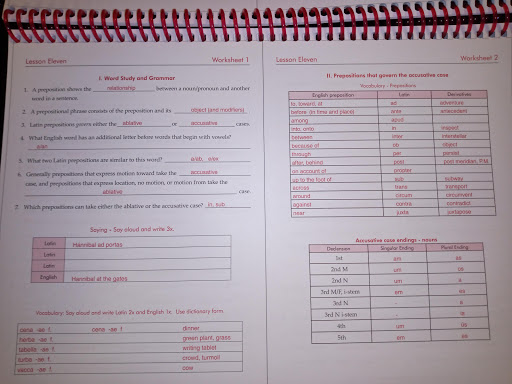 Lesson Eleven
Worksheet 1
I: Word Study and Grammar
1. A preposition shows the relationship between a noun/pronoun and another
word in a sentence.
2. A prepositional phrase consists of the preposition and its object (and modifiers)
3. Latin prepositions govern either the ablative or accusative cases.
4. What English word has an additional letter before words that begin with vowels?
a/an
5. What two Latin prepositions are similar to this word? a/ab, e/ex
6. Generally prepositions that express motion toward take the accusative
case, and prepositions that express location, no motion, or motion from take the
ablative
7. Which prepositions can take either the ablative or the accusative case? in, sub
Saying - Say aloud and write 3x.
Latin Hannibal ad portas
Latin
Latin
English Hannibal at the gates
Vocabulary: Say aloud and write Latin 2x and English 1x. Use dictionary form.
cena -ae f. cena -ae f. dinner
herba -ae f. green plant, grass
tabella -ae f. writing tablet
turba -ae f. crowd, turmoil
vacca -ae f. cow
Lesson Eleven
Worksheet 2
II. Prepositions that govern the accusative case
Vocabulary - Prepositions
English preposition Latin Derivatives
to, toward, at ad adventure
before (in time and place) ante antecedent
among apud
into, onto in inspect
between inter interstellar
because of ob object
through per persist
after, behind post post meridian, P.M.
on account of propter
up to the foot of sub subway
across trans transport
around circum circumvent
against contra contradict
near juxta juxtapose
Accusative case endings - nouns
Declension Singular Ending Plural Ending
1st am as
2nd M um os
2nd N um a
3rd M/F, i-stem em es
3rd N - a
3rd N i-stem - ia
4th um us
5th em es